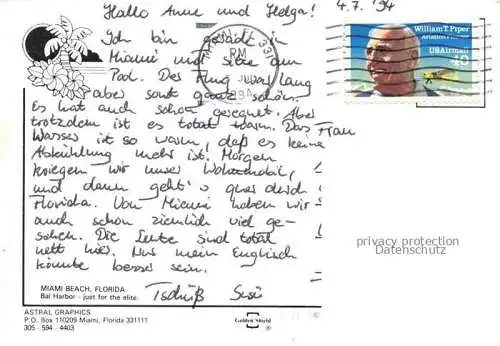 Hallo Anne und Helga! 4.7.'94
Ich bin gerade in
Miami und sitze am
Pool. Der Flug war lang
aber sonst ganz schön.
Es hat auch schon geregnet. Aber
trotzdem ist es total warm. Das
Wasser ist so warm, daß es keine
Abkühlung mehr ist. Morgen
kriegen wir unser Wohnmobil,
und dann geht's quer durch
Florida. Von Miami haben wir
auch schon ziemlich viel ge-
sehen. Die Leute sind total
nett hier. Nur mein Englisch
könnte besser sein.
Tschüß Susi
Frau
William T. Piper
Aviation Pioneer
USAirmail
40
MIAMI FL 331
PM
JUL
1994
privacy protection
Datenschutz
MIAMI BEACH, FLORIDA
Bal Harbor - just for the elite.
ASTRAL GRAPHICS
P.O. Box 110209 Miami, Florida 331111
305 - 594 - 4403
Golden Shield